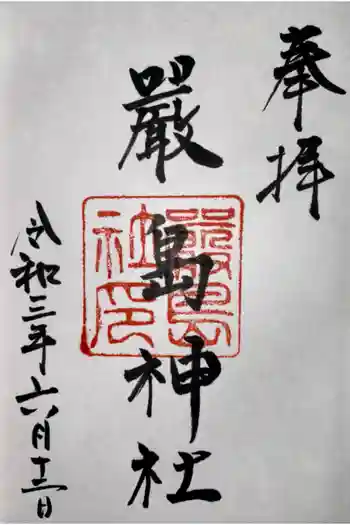 奉拝
嚴島神社
嚴島社印
令和三年六月十二日